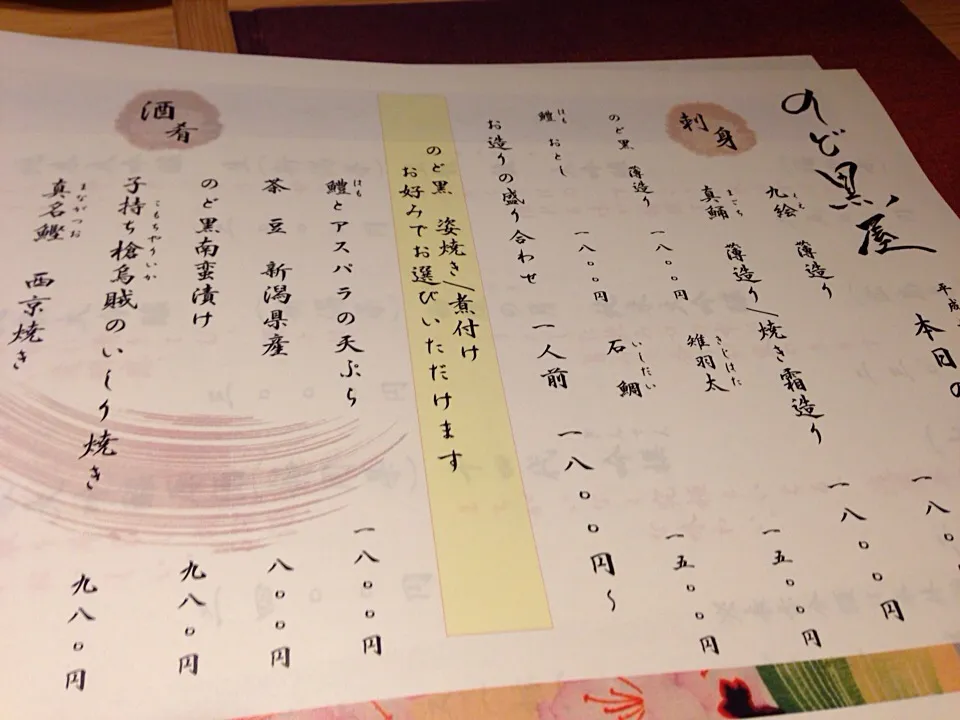 のど黒屋
平成
本日の
刺身
九絵 薄造り 一八〇
くえ
真鯒 薄造り/焼き霜造り 一八〇〇円
まごち
雉羽太 一五〇〇円
きじはた
のど黒 薄造り 一八〇〇円
石鯛 一五〇〇円
いしだい
鱧おとし 一八〇〇円
はも
お造りの盛り合わせ 一人前 一八〇〇円〜
のど黒 姿焼き/煮付け
お好みでお選びいただけます
酒肴
鱧とアスパラの天ぷら 一八〇〇円
はも
茶豆 新潟県産 八〇〇円
のど黒南蛮漬け 九八〇円
子持ち槍烏賊のいしり焼き 九八〇円
こもちやりいか
真名鰹 西京焼き
まながつお